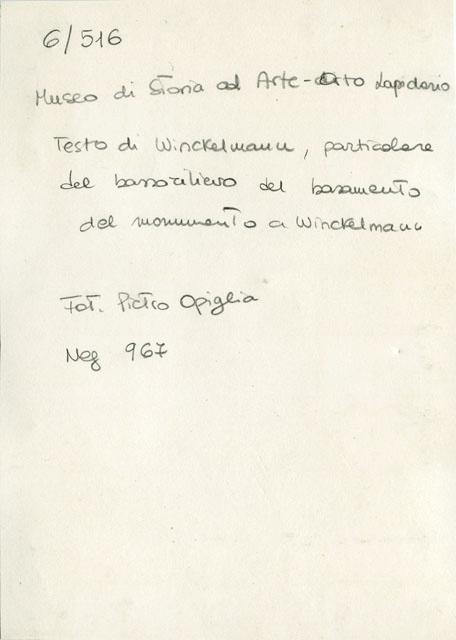 6/516
Museo di Storia ed Arte - Orto Lapidario
Testo di Winckelmann, particolare
del bassorilievo del basamento
del monumento a Winckelmann
Fot. Pietro Opiglia
Neg 967